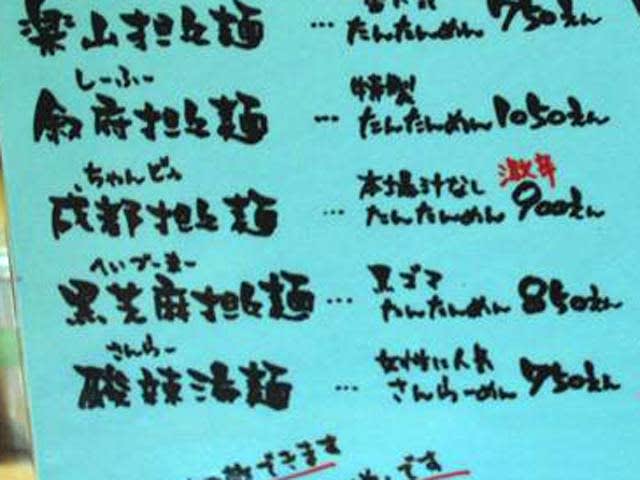 楽山担々麺 … たんたんめん 750えん
しーふー 特製
叙府担々麺 … たんたんめん 1050えん
ちゃんどぅ 本場汁なし 激辛
成都担々麺 … たんたんめん 900えん
へいづーまー 黒ゴマ
黒芝麻担々麺 … たんたんめん 850えん
さんらー 女性に人気
酸辣湯麺 … さんらーめん 750えん
できます です